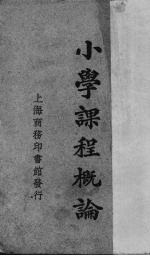 小學課程概論
上海商務印書館發行